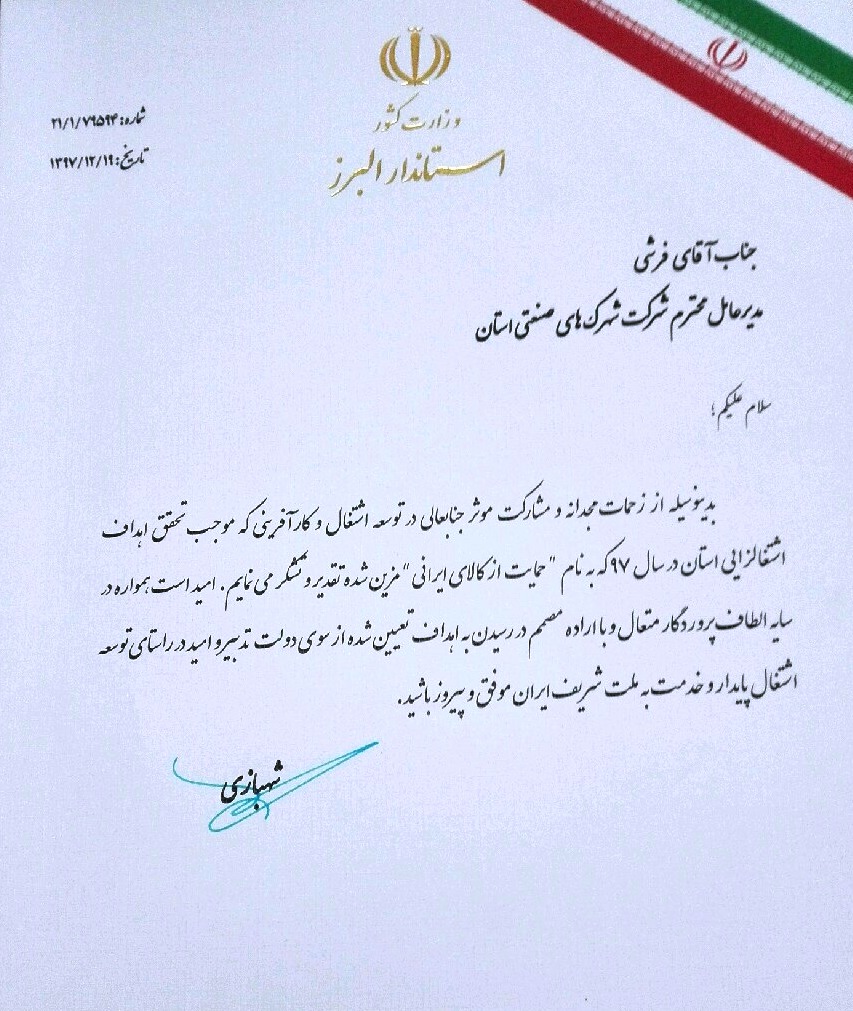 وزارت کشور
استاندار البرز
شماره: ۲۱/۱/۷۹۵۹۴
تاریخ: ۱۳۹۷/۱۲/۱۹
جناب آقای فرشی
مدیرعامل محترم شرکت شهرک های صنعتی استان
سلام علیکم؛
بدینوسیله از زحمات مجدانه و مشارکت موثر جنابعالی در توسعه اشتغال و کارآفرینی که موجب تحقق اهداف
اشتغالزایی استان در سال ۹۷ که به نام "حمایت از کالای ایرانی" مزین شده تقدیر و تشکر می نمایم. امید است همواره در
سایه الطاف پروردگار متعال و با اراده مصمم در رسیدن به اهداف تعیین شده از سوی دولت تدبیر و امید در راستای توسعه
اشتغال پایدار و خدمت به ملت شریف ایران موفق و پیروز باشید.
شهبازی